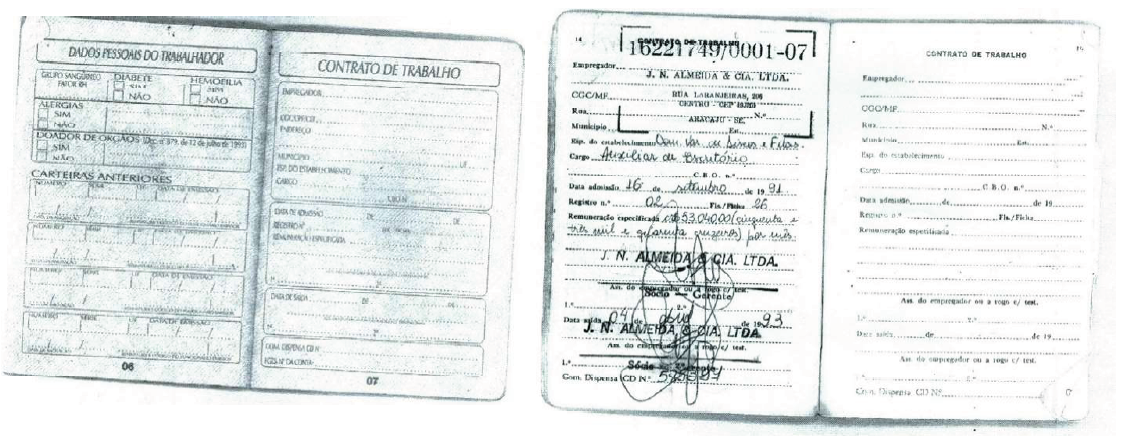 DADOS PESSOAIS DO TRABALHADOR
GRUPO SANGUÍNEO
FATOR RH
DIABETE
SIM
NÃO
HEMOFILIA
SIM
NÃO
ALERGIAS
SIM
NÃO
DOADOR DE ORGÃOS (Dec. nº 879, de 12 de julho de 1993)
SIM
NÃO
CARTEIRAS ANTERIORES
NÚMERO SÉRIE UF DATA DE EMISSÃO
NÚMERO SÉRIE UF DATA DE EMISSÃO
NÚMERO SÉRIE UF DATA DE EMISSÃO
NÚMERO SÉRIE UF DATA DE EMISSÃO
06
CONTRATO DE TRABALHO
EMPREGADOR
CGC/CPF/CEI
ENDEREÇO
MUNICÍPIO UF
ESP. DO ESTABELECIMENTO
CARGO
CBO Nº
DATA DE ADMISSÃO DE DE
REGISTRO Nº
REMUNERAÇÃO ESPECIFICADA
1º 2º
DATA DE SAÍDA DE DE
1º 2º
COM. DISPENSA CD Nº
FGTS Nº DA CONTA
07
14
CONTRATO DE TRABALHO
16221749/0001-07
Empregador
J. N. ALMEIDA & CIA. LTDA.
CGC/MF
RUA LARANJEIRAS, 206
CENTRO - CEP
Rua N.º
ARACAJU - SE.
Município Est.
Esp. do estabelecimento Com. Var. de Discos e Fitas.
Cargo Auxiliar de Escritório
C.B.O. n.º
Data admissão 16 de setembro de 19 91
Registro n.º 02 Fls./Ficha 26
Remuneração especificada Cr$ 53.040,00 (cinquenta e
três mil e quarenta cruzeiros) por mês
J. N. ALMEIDA & CIA. LTDA.
Ass. do empregador ou a rogo c/ test.
Sócio — Gerente
1.º 2.º
Data saída 04 de abril de 19 93
J. N. ALMEIDA & CIA. LTDA
Ass. do empregador ou a rogo c/ test.
1.º
Sócio — Gerente
Com. Dispensa CD N.º
15
CONTRATO DE TRABALHO
Empregador
CGC/MF
Rua N.º
Município Est.
Esp. do estabelecimento
Cargo
C.B.O. n.º
Data admissão de de 19
Registro n.º Fls./Ficha
Remuneração especificada
Ass. do empregador ou a rogo c/ test.
1.º 2.º
Data saída de de 19
Ass. do empregador ou a rogo c/ test.
1.º 2.º
Com. Dispensa CD Nº